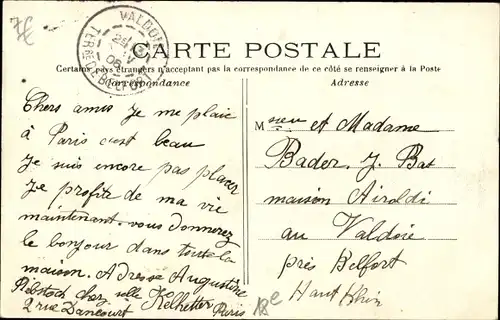 7€
VALDOIE
TERRE DE BELFORT
CARTE POSTALE
Certains pays étrangers n'acceptant pas la correspondance de ce côté se renseigner à la Poste
Correspondance
Adresse
Chers amis je me plaie
à Paris c'est beau
Je suis encore pas placer
Je profite de ma vie
maintenant. vous donnerez
le bonjour dans toute la
maison. Adresse Augustine
chez Mlle Kelhetter
2 rue Dancourt Paris 18e
Msieu et Madame
Bader. J. Bat
maison Airoldi
au Valdoie
près Belfort
Haut Rhin